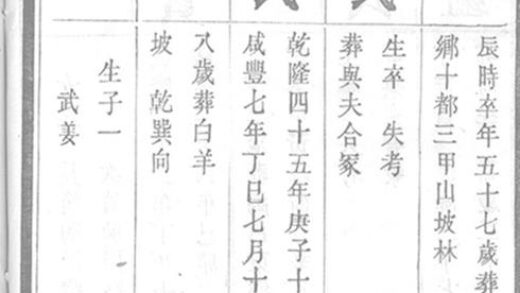 辰時卒年五十七歲葬
鄉十都三甲山坡林
生卒　失考
葬與夫合冢
乾隆四十五年庚子十
咸豐七年丁巳七月十
八歲葬白羊
坡　乾巽向
生子一
武姜